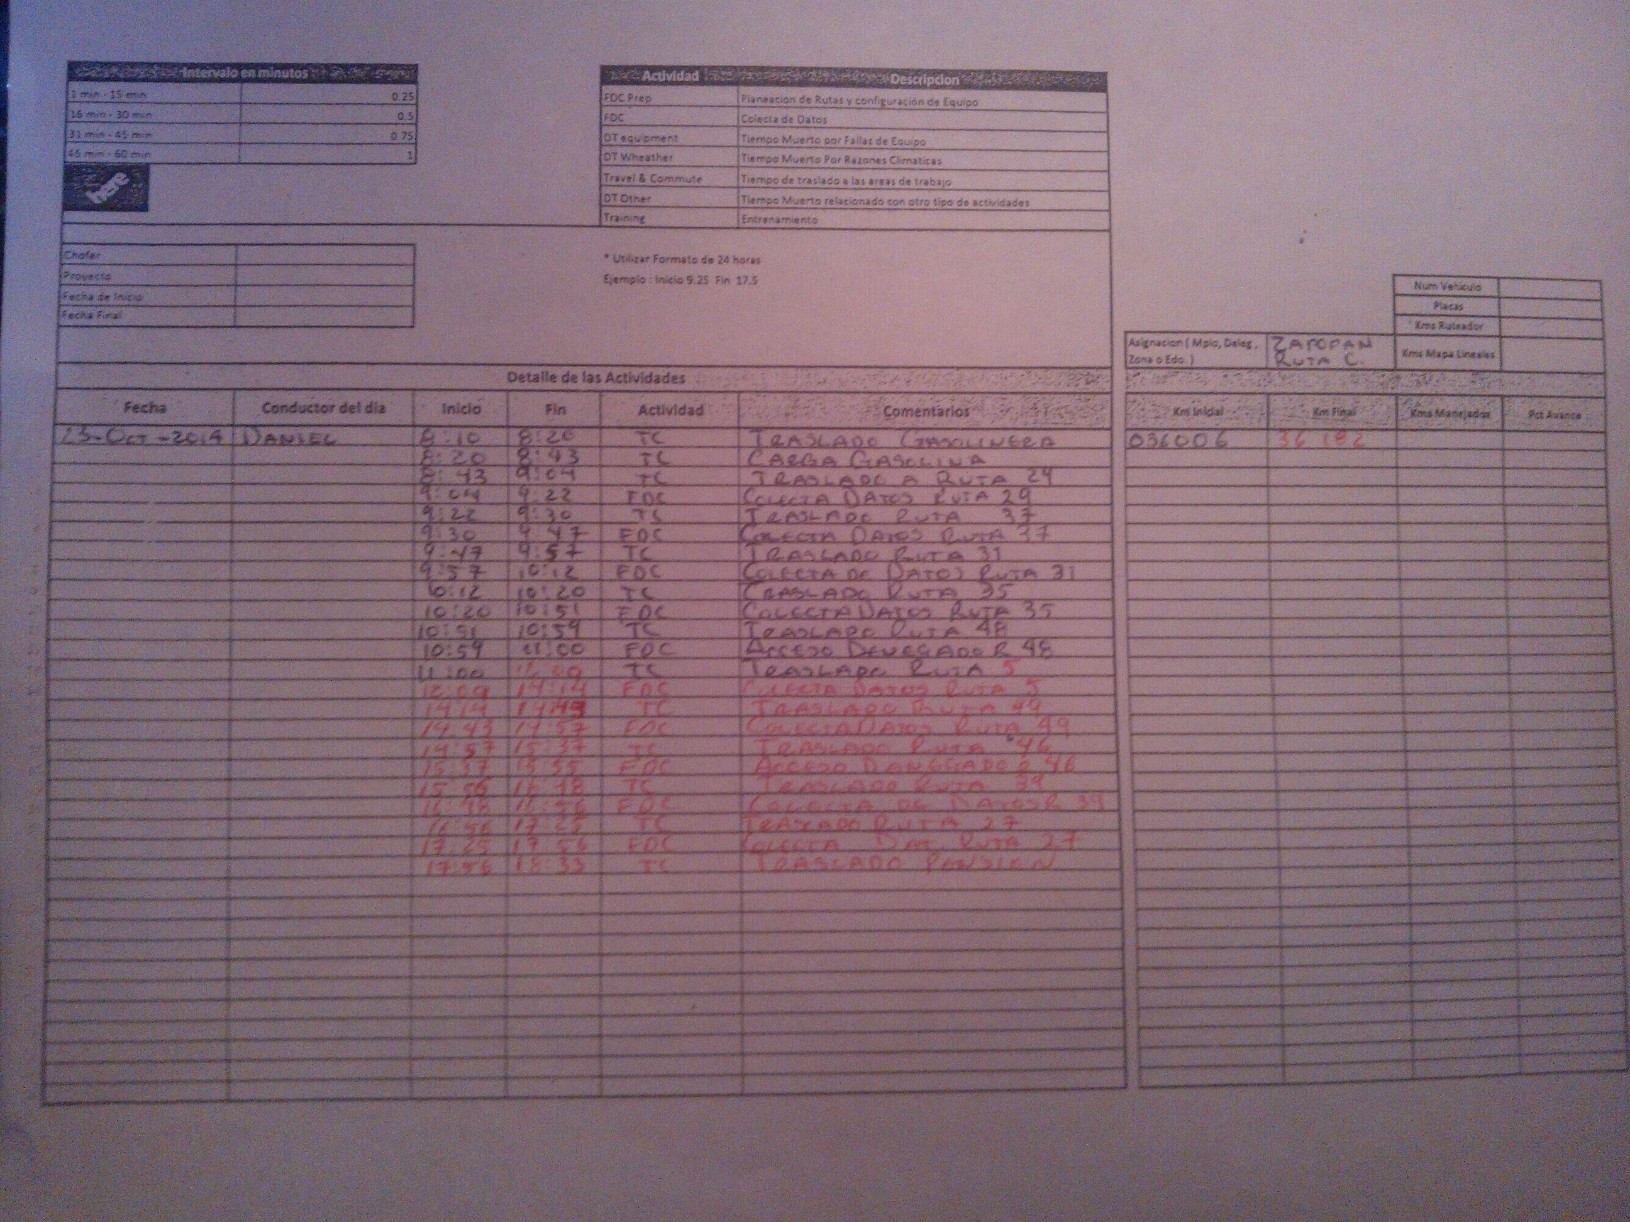 Intervalo en minutos
1 min - 15 min 0.25
16 min - 30 min 0.5
31 min - 45 min 0.75
46 min - 60 min 1
here
Actividad Descripcion
FDC Prep Planeacion de Rutas y configuración de Equipo
FDC Colecta de Datos
DT equipment Tiempo Muerto por Fallas de Equipo
DT Wheather Tiempo Muerto Por Razones Climaticas
Travel & Commute Tiempo de traslado a las areas de trabajo
DT Other Tiempo Muerto relacionado con otro tipo de actividades
Training Entrenamiento
Chofer
Proyecto
Fecha de Inicio
Fecha Final
* Utilizar Formato de 24 horas
Ejemplo : Inicio 9.25 Fin 17.5
Num Vehiculo
Placas
Kms Ruteador
Kms Mapa Lineales
Asignacion ( Mpio, Deleg , Zona o Edo. ) ZAPOPAN RUTA C.
Detalle de las Actividades
Fecha Conductor del día Inicio Fin Actividad Comentarios Km Inicial Km Final Kms Manejados Pct Avance
23-Oct-2014 DANIEL 8:10 8:20 TC TRASLADO GASOLINERA 036006 36 182
8:20 8:43 TC CARGA GASOLINA
8:43 9:04 TC TRASLADO A RUTA 29
9:04 9:22 FDC COLECTA DATOS RUTA 29
9:22 9:30 TC TRASLADO RUTA 37
9:30 9:47 FDC COLECTA DATOS RUTA 37
9:47 9:57 TC TRASLADO RUTA 31
9:57 10:12 FDC COLECTA DE DATOS RUTA 31
10:12 10:20 TC TRASLADO RUTA 35
10:20 10:51 FDC COLECTA DATOS RUTA 35
10:51 10:59 TC TRASLADO RUTA 48
10:59 11:00 FDC ACCESO DENEGADO R 48
11:00 TC TRASLADO RUTA 5
12:09 14:14 FDC COLECTA DATOS RUTA 5
14:14 14:43 TC TRASLADO RUTA 49
14:43 14:57 FDC COLECTA DATOS RUTA 49
14:57 15:37 TC TRASLADO RUTA 46
15:37 15:55 FDC ACCESO DANEGADO R 46
TC TRASLADO RUTA 39
16:48 16:56 FDC COLECTA DE DATOS R 39
16:56 17:25 TC TRASLADO RUTA 27
17:25 17:56 FDC COLECTA DAT. RUTA 27
17:56 18:33 TC TRASLADO PENSION